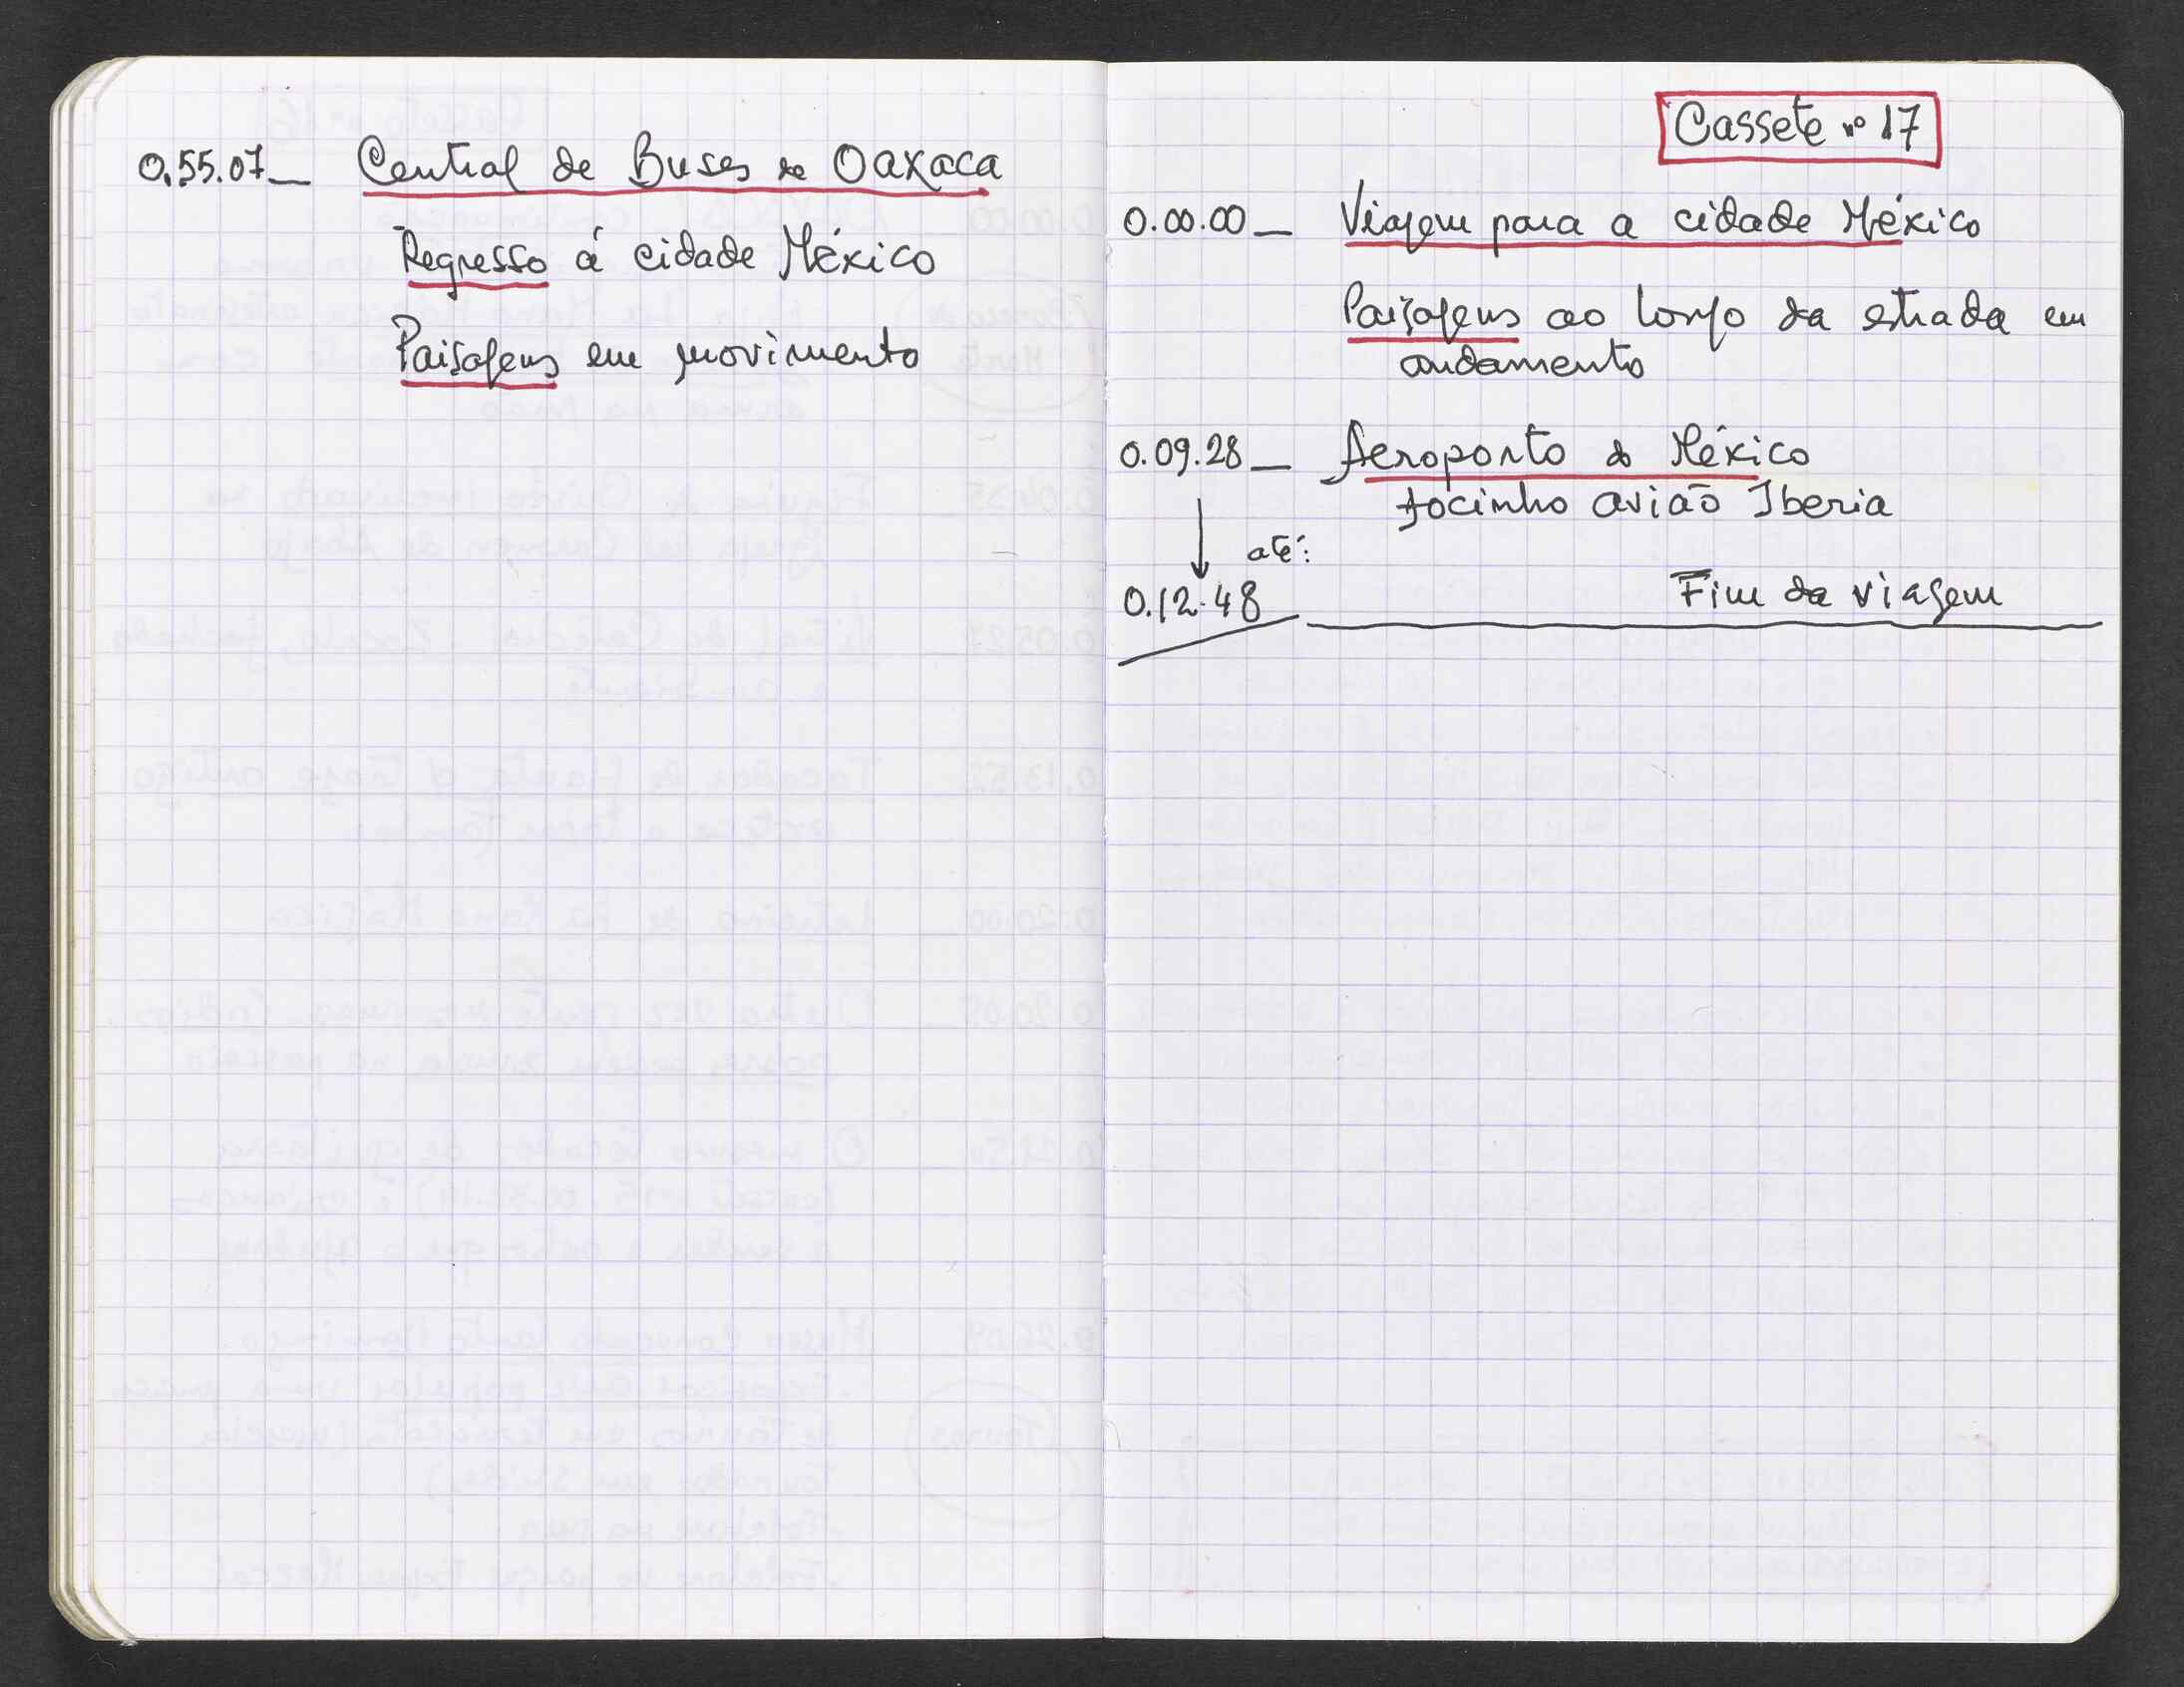 0.55.07_ Central de Buses de Oaxaca
Regresso á cidade México
Paisagens em movimento
Cassete nº 17
0.00.00_ Viagem para a cidade México
Paisagens ao longo da estrada em
andamento
0.09.28_ Aeroporto do México
focinho avião Iberia
até:
0.12.48 Fim da viagem